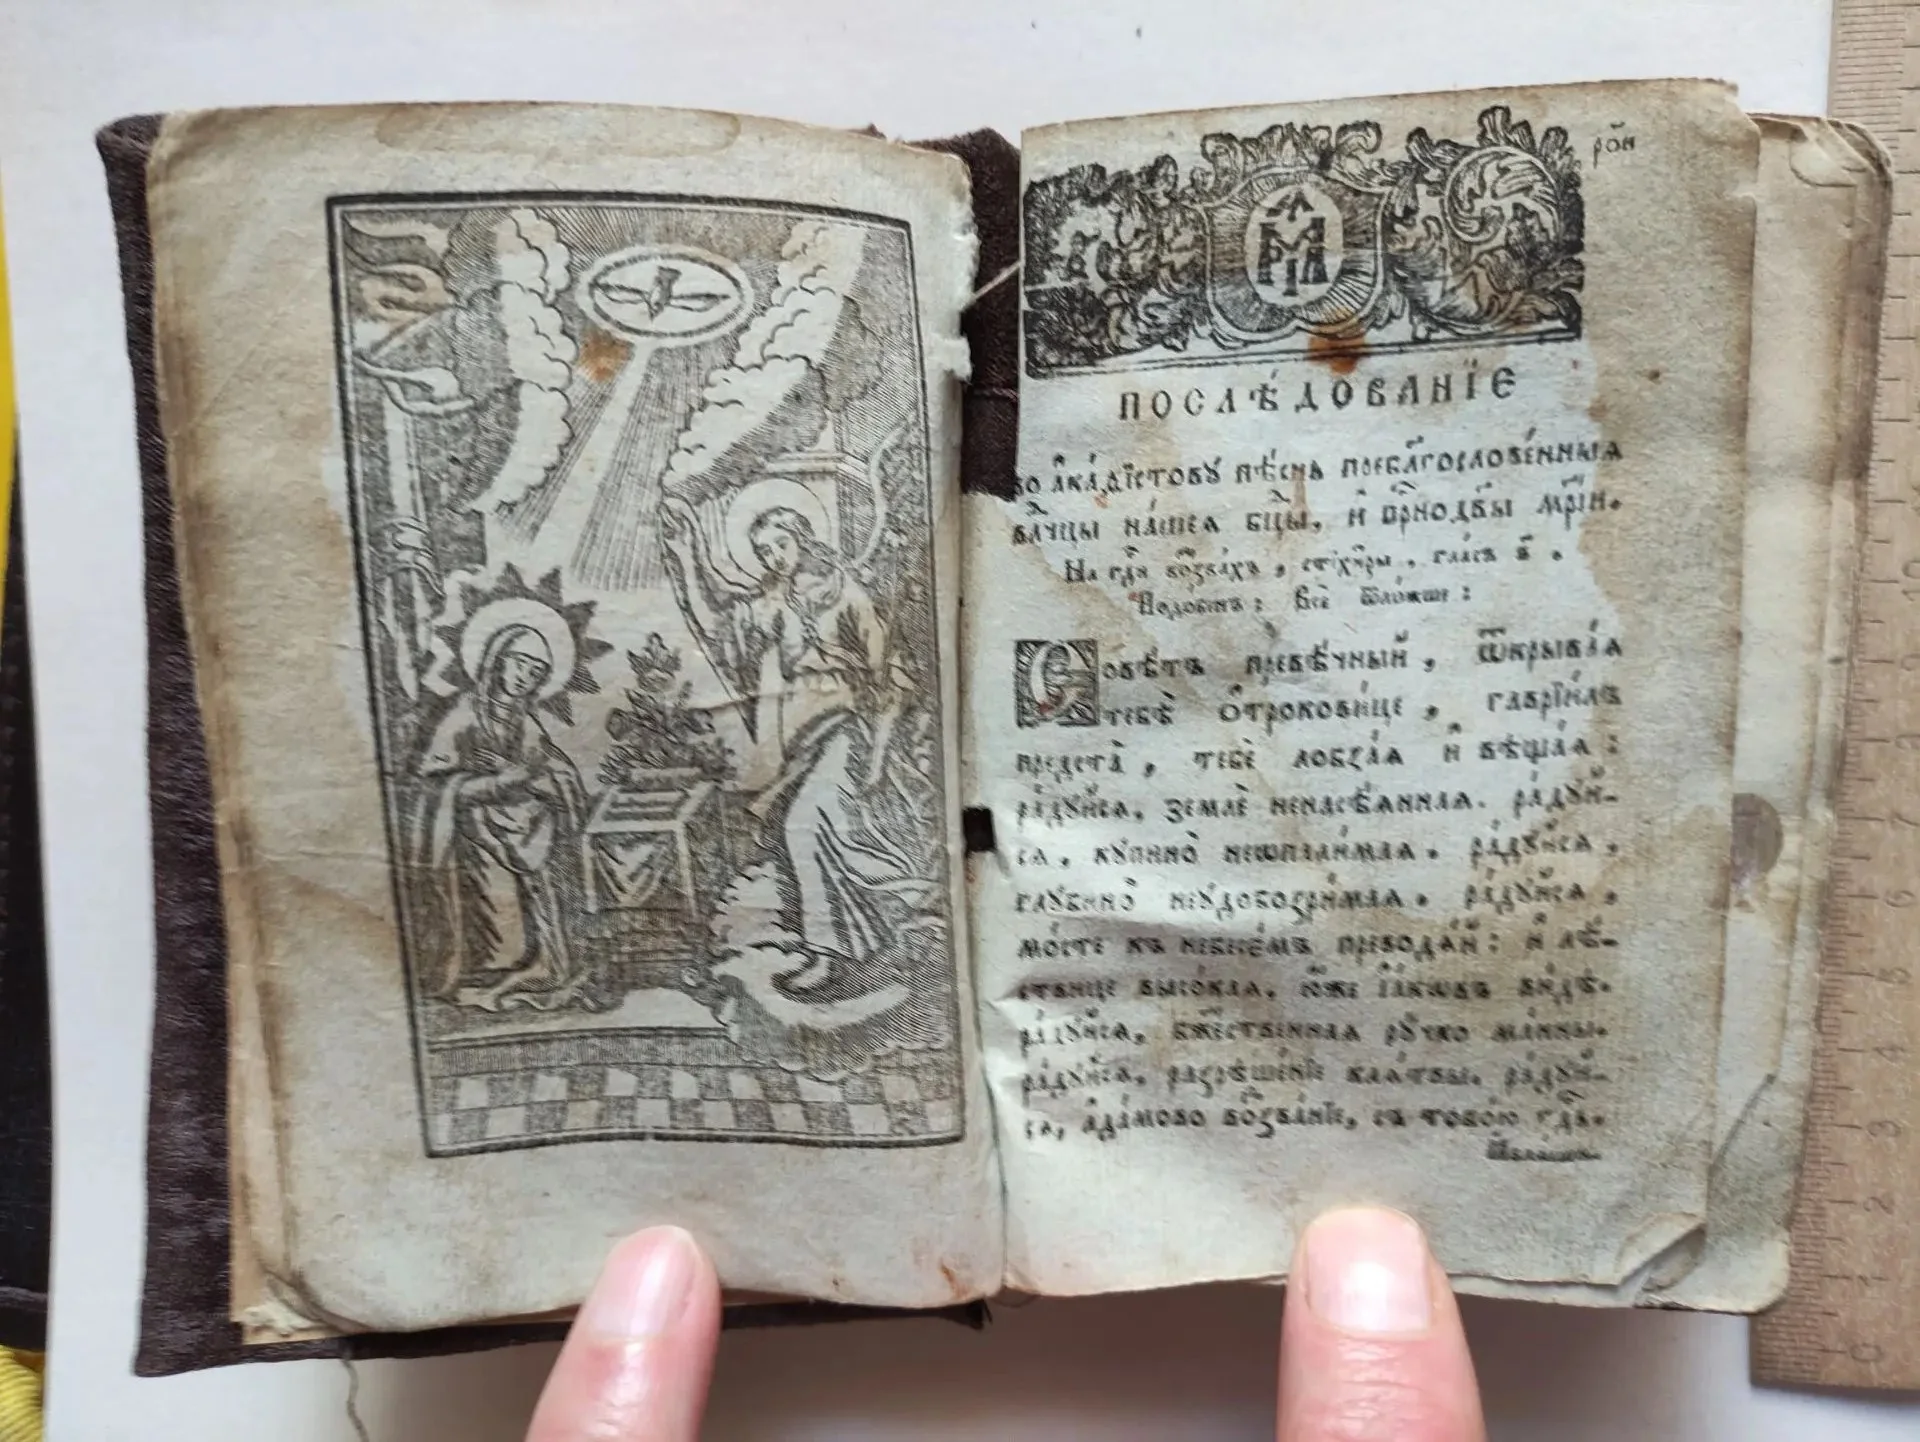 рои
МАРІА
ПОСЛѢДОВАНІЕ
ко а҆ка́ѳїстову пѣ́снь пребл҃гослове́нныѧ
влⷣчцы на́шеѧ бц҃ы, и҆ прⷭ҇нодв҃ы мр҃і́и.
На гдⷭ҇и воззва́хъ, стїхи̑ры, гла́съ в҃.
Подо́бенъ: Всѐ ѿло́жше:
Совѣ́тъ превѣ́чный, ѿкрыва́ѧ
тебѣ̀ ѻ҆трокови́це, гаврїи́лъ
предста̀, тебѐ лобза́ѧ и҆ вѣща́ѧ:
ра́дꙋйсѧ, землѐ ненасѣ́ѧннаѧ. ра́дꙋй-
сѧ, кꙋпино̀ неѡпали́маѧ. ра́дꙋйсѧ,
глꙋбино̀ неꙋдобозри́маѧ. ра́дꙋйсѧ,
мо́сте къ небесє́мъ преводѧ́й: и҆ лѣ́-
ствице высо́каѧ, ю҆́же і҆а́кѡвъ ви́дѣ.
ра́дꙋйсѧ, бж҃е́ственнаѧ рꙋ́чко ма́нны.
ра́дꙋйсѧ, разрѣше́нїе клѧ́твы. ра́дꙋй-
сѧ, а҆да́мово воззва́нїе, съ тобо́ю гдⷭ҇ь.